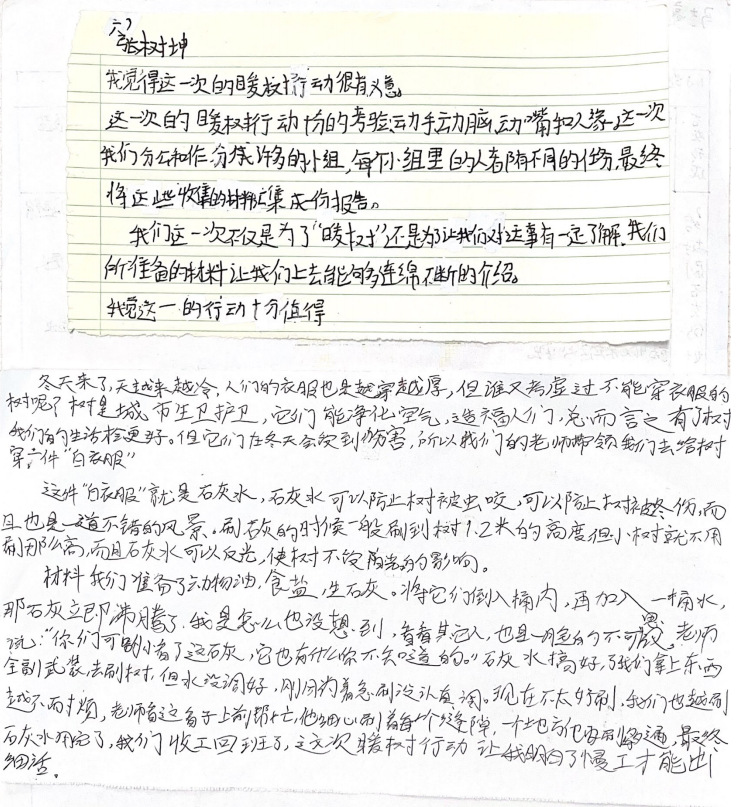 六)
张树坤
我觉得这一次的暖树行动很有义意。
这一次的暖树行动十份的考验动手动脑,动嘴和人缘。这一次
我们分工和作,分成许多的小组,每个小组里的人都有不同的任务,最终
将这些收集的材料汇集成份报告。
我们这一次不仅是为了“暖树”还是为了让我们对这事有一定了解,我们
所准备的材料让我们上去能够多连绵不断的介绍。
我觉这一的行动十分值得
冬天来了,天越来越冷,人们的衣服也是越穿越厚,但谁又考虑过不能穿衣服的
树呢?树是城市生卫护卫,它们能净化空气,造福人们,总而言之有了树
我们的生活才会更好。但它们在冬天会受到伤害,所以我们的老师带领我们去给树
穿件“白衣服”
这件“白衣服”就是石灰水,石灰水可以防止树被虫咬,可以防止树被冬伤,而
且也是一道不错的风景。刷石灰的时候一般刷到树1.2米的高度但小树就不用
刷那么高,而且石灰水可以反光,使树不受阳光的影响。
材料我们准备了动物油,食盐,生石灰。将它们倒入桶内,再加入一桶水,
那石灰立即沸腾了,我是怎么也没想到,看着其它人,也是一脸的不可思议,老师
说:“你们可别小看了这石灰,它也有什么你不知道的。”石灰水搞好了,我们拿上东西
全副武装,去刷树,但水没调好,刚用为着急刷没认真调。现在不太好刷,我们也越刷
越不耐烦,老师看这看于上前帮忙,他细心刷着每个缝隙,一个地方他要刷几遍,最终
石灰水刷完了,我们收工回到班了,这次暖树行动让我明白了慢工才能出
细活。